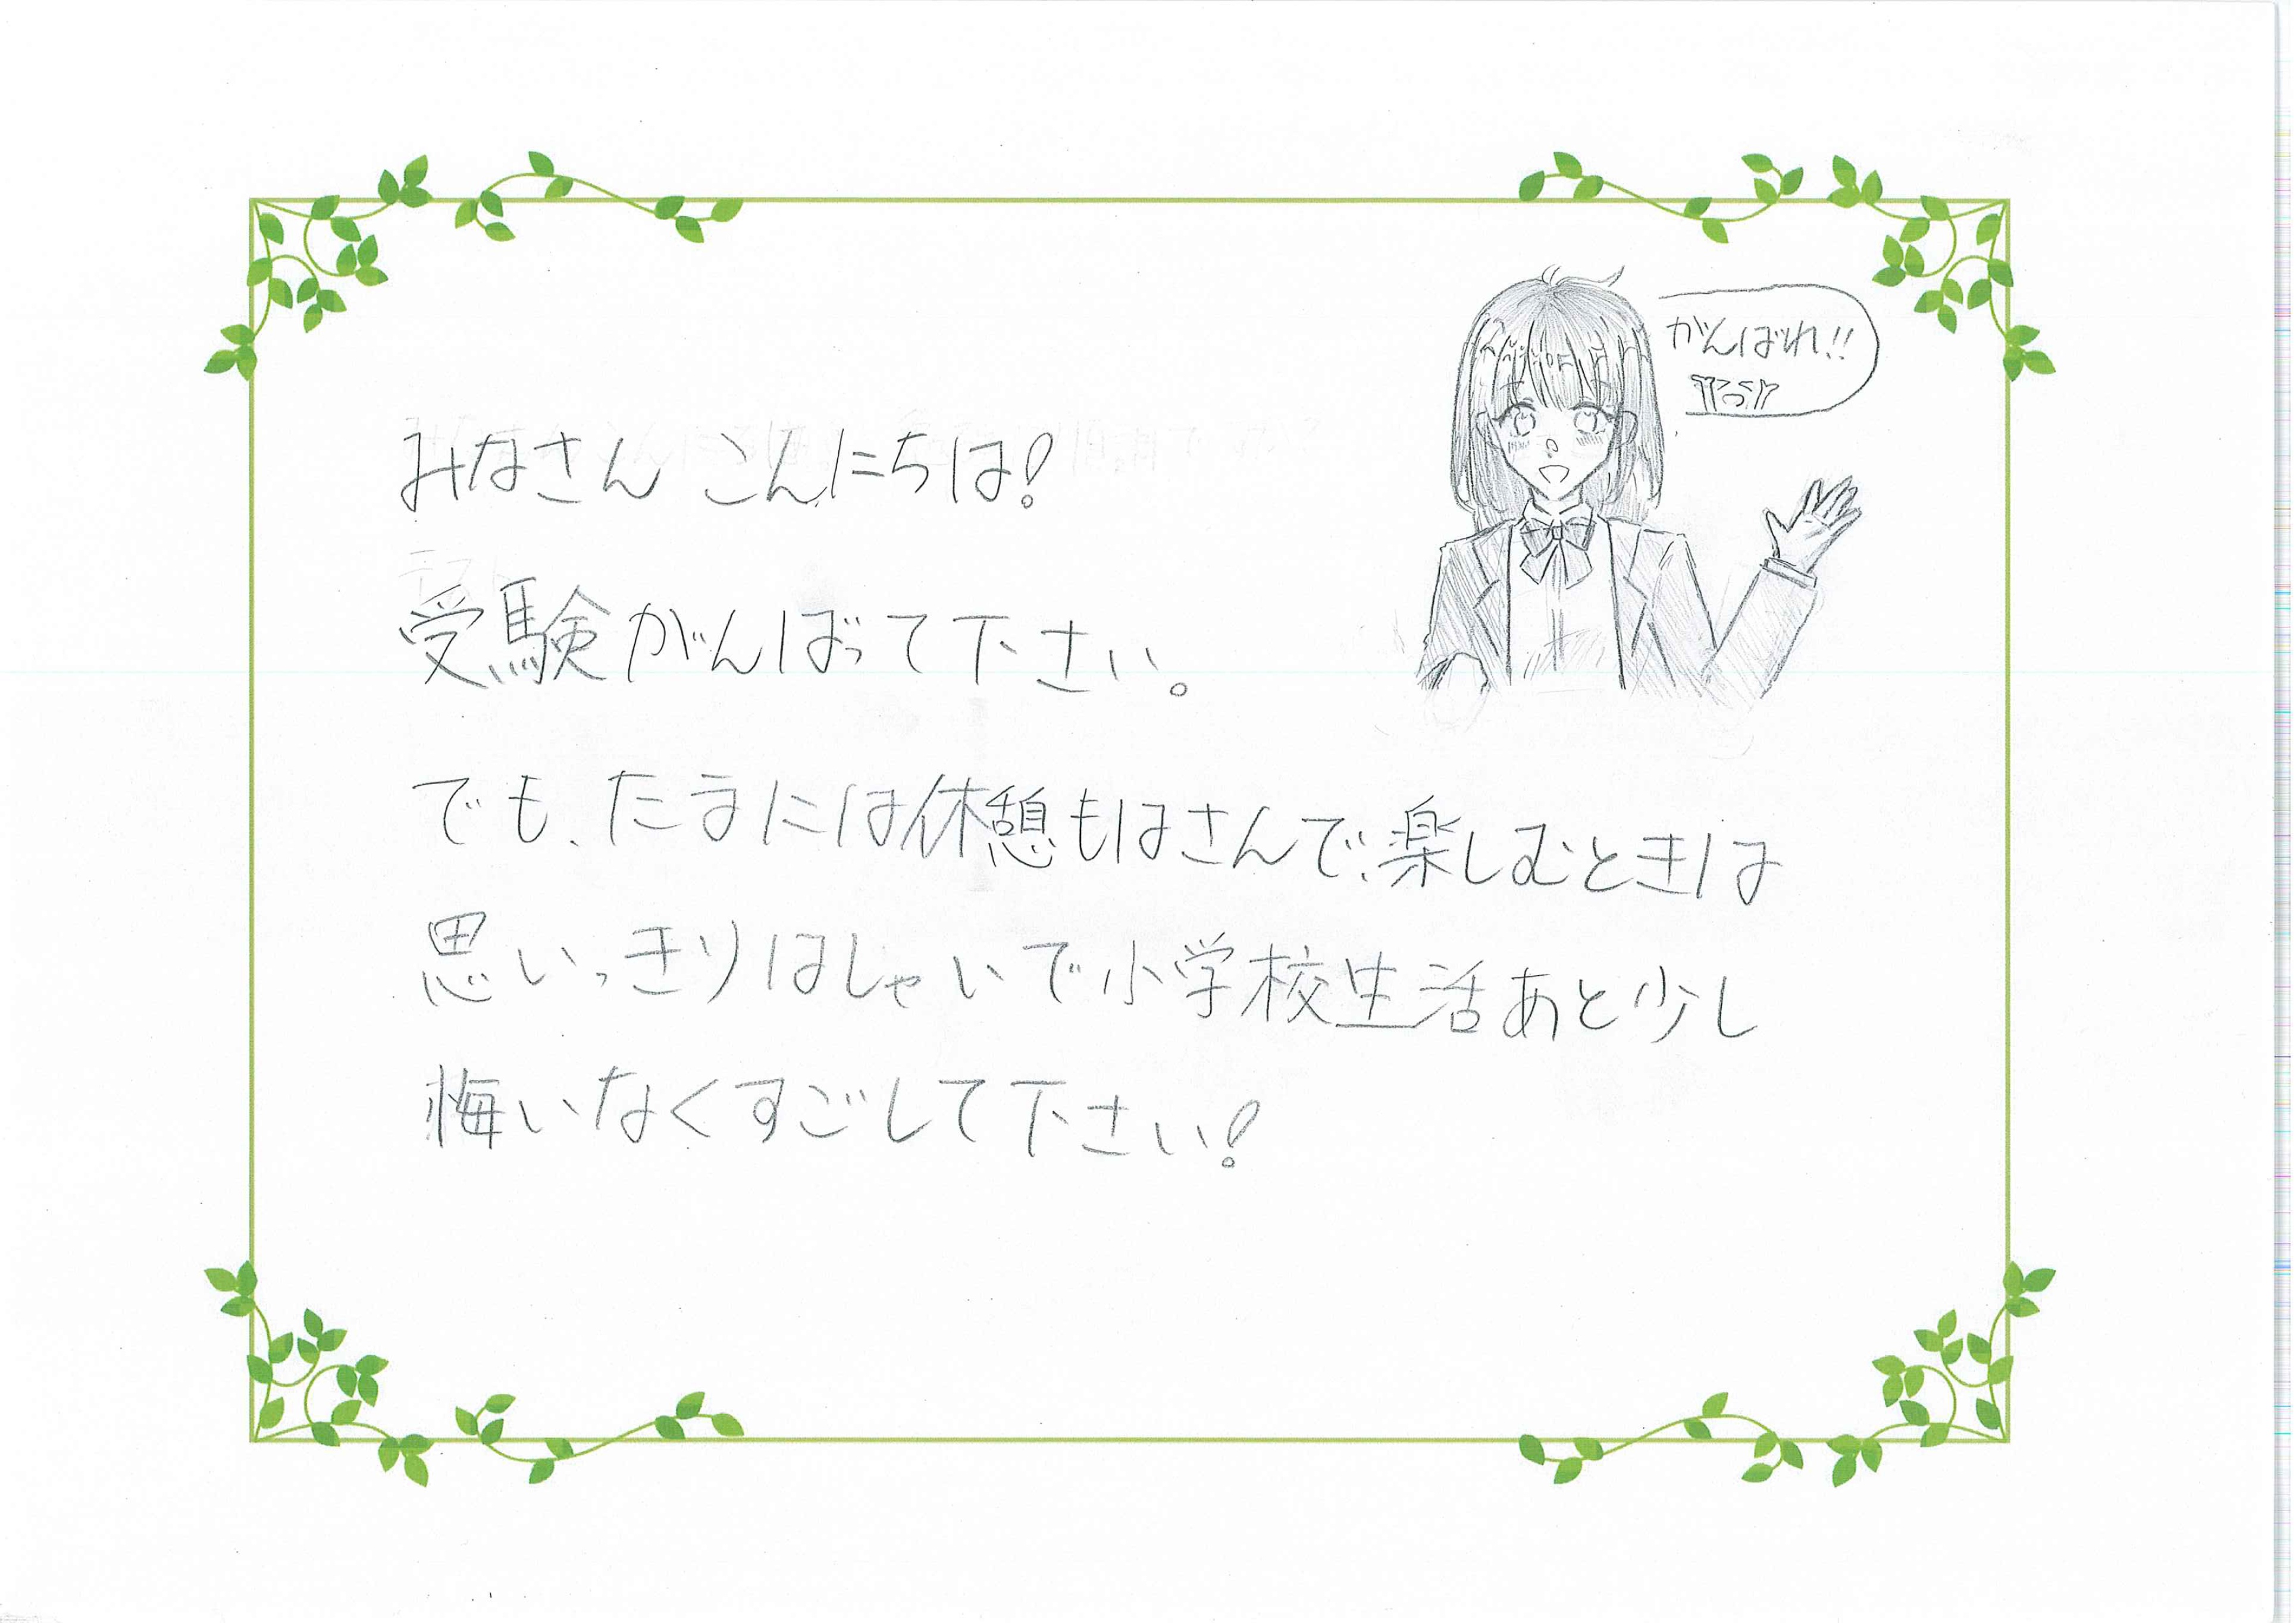 がんばれ!!
みなさん こんにちは!
受験がんばって下さい。
でも、たまには休憩もはさんで、楽しむときは
思いっきりはしゃいで小学校生活あと少し
悔いなくすごして下さい!